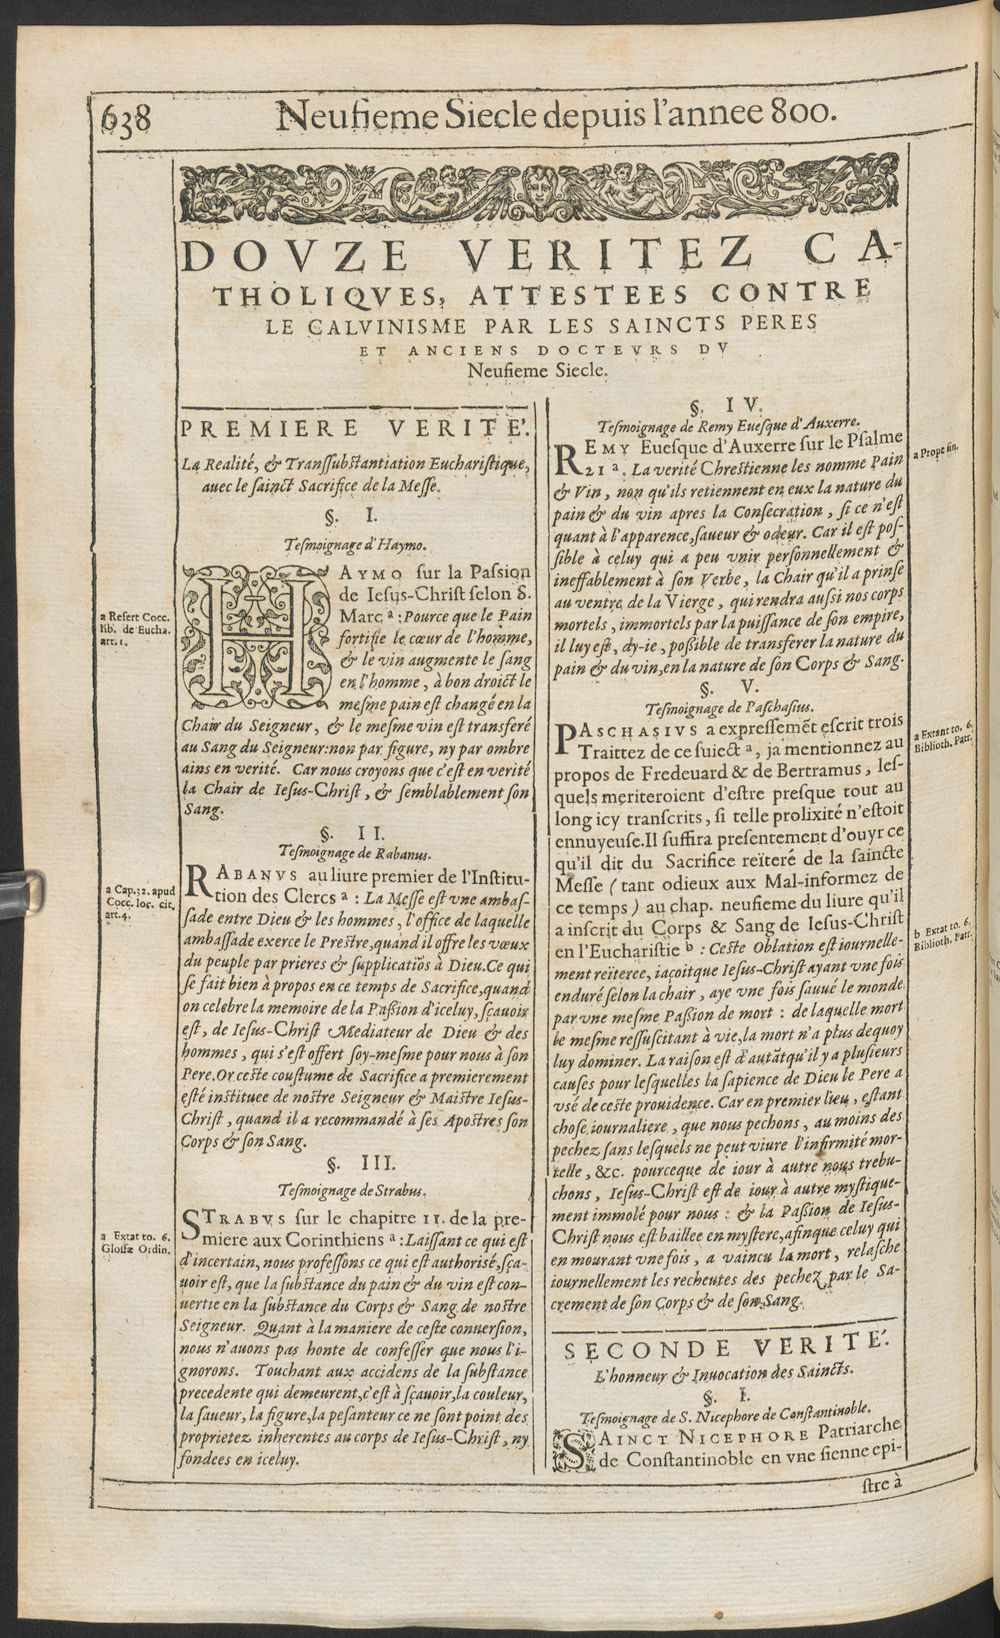 638
Neufieme Siecle depuis l'annee 800.
DOVZE VERITEZ CA-
THOLIQVES, ATTESTEES CONTRE
LE CALVINISME PAR LES SAINCTS PERES
ET ANCIENS DOCTEVRS DV
Neufieme Siecle.
PREMIERE VERITE'.
La Realité, & Transſubſtantiation Euchariſtique,
auec le ſainct Sacrifice de la Meſſe.
§. I.
Teſmoignage d'Haymo.
HAYMO ſur la Paſsion
de Ieſus-Chriſt ſelon S.
Marc a : Pource que le Pain
fortifie le cœur de l'homme,
& le vin augmente le ſang
en l'homme, à bon droict le
meſme pain eſt changé en la
Chair du Seigneur, & le meſme vin eſt transferé
au Sang du Seigneur: non par figure, ny par ombre
ains en verité. Car nous croyons que c'eſt en verité
la Chair de Ieſus-Chriſt, & ſemblablement ſon
Sang.
a Refert Cocc.
lib. de Eucha.
art. 1.
§. II.
Teſmoignage de Rabanus.
RABANVS au liure premier de l'Inſtitu-
tion des Clercs a : La Meſſe eſt vne ambaſ-
ſade entre Dieu & les hommes, l'office de laquelle
ambaſſade exerce le Preſtre, quand il offre les vœux
du peuple par prieres & ſupplicatiōs à Dieu. Ce qui
ſe fait bien à propos en ce temps de Sacrifice, quand
on celebre la memoire de la Paſsion d'iceluy, ſçauoir
eſt, de Ieſus-Chriſt Mediateur de Dieu & des
hommes, qui s'eſt offert ſoy-meſme pour nous à ſon
Pere. Or ceſte couſtume de Sacrifice a premierement
eſté inſtituee de noſtre Seigneur & Maiſtre Ieſus-
Chriſt, quand il a recommandé à ſes Apoſtres ſon
Corps & ſon Sang.
a Cap. 32. apud
Cocc. loc. cit.
art. 4.
§. III.
Teſmoignage de Strabus.
STRABVS ſur le chapitre 11. de la pre-
miere aux Corinthiens a : Laiſſant ce qui eſt
d'incertain, nous profeſſons ce qui eſt authoriſé, ſça-
uoir eſt, que la ſubſtance du pain & du vin eſt con-
uertie en la ſubſtance du Corps & Sang de noſtre
Seigneur. Quant à la maniere de ceſte conuerſion,
nous n'auons pas honte de confeſſer que nous l'i-
gnorons. Touchant aux accidens de la ſubſtance
precedente qui demeurent, c'eſt à ſçauoir, la couleur,
la ſaueur, la figure, la peſanteur ce ne ſont point des
proprietez inherentes au corps de Ieſus-Chriſt, ny
fondees en iceluy.
a Extat to. 6.
Gloſſæ Ordin.
§. IV.
Teſmoignage de Remy Eueſque d'Auxerre.
REMY Eueſque d'Auxerre ſur le Pſalme
21 a. La verité Chreſtienne les nomme Pain
& Vin, non qu'ils retiennent en eux la nature du
pain & du vin apres la Conſecration, ſi ce n'eſt
quant à l'apparence, ſaueur & odeur. Car il eſt poſ-
ſible à celuy qui a peu vnir perſonnellement &
ineffablement à ſon Verbe, la Chair qu'il a prinſe
au ventre de la Vierge, qui rendra auſsi nos corps
mortels, immortels par la puiſſance de ſon empire,
il luy eſt, dy-ie, poſsible de transferer la nature du
pain & du vin, en la nature de ſon Corps & Sang.
a Prope fin.
§. V.
Teſmoignage de Paſchaſius.
PASCHASIVS a expreſſemēt eſcrit trois
Traittez de ce ſuiect a, ja mentionnez au
propos de Fredeuard & de Bertramus, leſ-
quels meriteroient d'eſtre preſque tout au
long icy tranſcrits, ſi telle prolixité n'eſtoit
ennuyeuſe. Il ſuffira preſentement d'ouyr ce
qu'il dit du Sacrifice reïteré de la ſaincte
Meſſe (tant odieux aux Mal-informez de
ce temps) au chap. neufieme du liure qu'il
a inſcrit du Corps & Sang de Ieſus-Chriſt
en l'Euchariſtie b : Ceſte Oblation eſt iournelle-
ment reïteree, iaçoitque Ieſus-Chriſt ayant vne fois
enduré ſelon la chair, aye vne fois ſauué le monde
par vne meſme Paſsion de mort : de laquelle mort
le meſme reſſuſcitant à vie, la mort n'a plus dequoy
luy dominer. La raiſon eſt d'autāt qu'il y a pluſieurs
cauſes pour leſquelles la ſapience de Dieu le Pere a
vſé de ceſte prouidence. Car en premier lieu, eſtant
choſe iournaliere, que nous pechons, au moins des
pechez ſans leſquels ne peut viure l'infirmité mor-
telle, &c. pourceque de iour à autre nous trebu-
chons, Ieſus-Chriſt eſt de iour à autre myſtique-
ment immolé pour nous : & la Paſsion de Ieſus-
Chriſt nous eſt baillee en myſtere, afin que celuy qui
en mourant vne fois, a vaincu la mort, relaſche
iournellement les recheutes des pechez par le Sa-
crement de ſon Corps & de ſon Sang.
a Extant to. 6.
Biblioth. Patr.
b Extat to. 6.
Biblioth. Patr.
SECONDE VERITE'.
L'honneur & Inuocation des Saincts.
§. I.
Teſmoignage de S. Nicephore de Conſtantinoble.
SAINCT NICEPHORE Patriarche
de Conſtantinoble en vne ſienne epi-
ſtre à